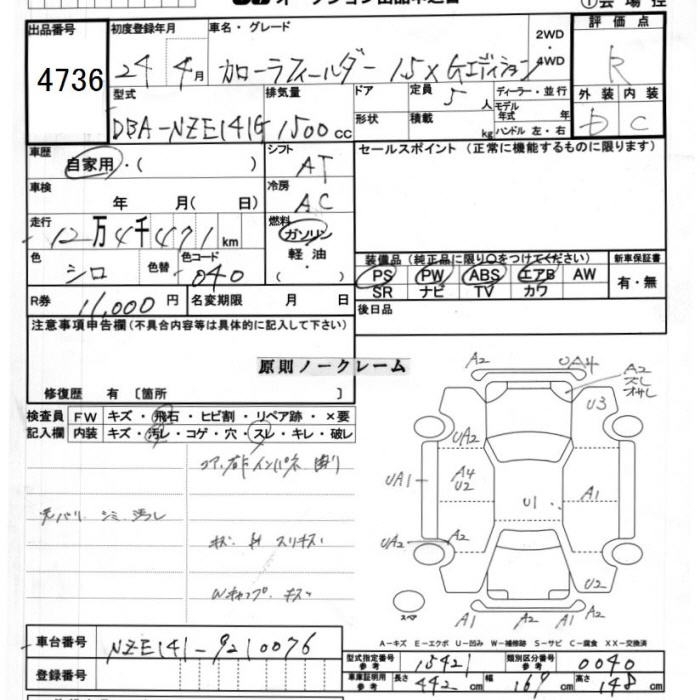 出品番号 4736
初度登録年月 24年 4月
車名・グレード カローラフィールダー 1.5X Gエディション
2WD・4WD
評価点 R
外装 D 内装 C
型式 DBA-NZE141G
排気量 1500cc
ドア 形状
定員 5人
積載 kg
ディーラー・並行
モデル年式 年
ハンドル 左・右
車歴 自家用・( )
シフト AT
セールスポイント (正常に機能するものに限ります)
車検 年 月( 日)
冷房 AC
走行 12万4千471km
燃料 ガソリン 軽油 ・( )
色 シロ 色替 色コード 040
装備品(純正品に限り○をつけてください) 新車保証書
PS PW ABS エアB AW 有・無
SR ナビ TV カワ
R券 11,000円 名変期限 月 日
後日品
注意事項申告欄(不具合内容等は具体的に記入して下さい)
原則ノークレーム
修復歴 有 〔箇所 〕
検査員 FW キズ・飛石・ヒビ割・リペア跡・×要
記入欄 内装 キズ・汚レ・コゲ・穴・スレ・キレ・破レ
A2 UA4
A2
U3
UA2
UA1
A4
U2
U1
A1
UA2
A2
U2
A1 A2 A1
スペア
A-キズ E-エクボ U-凹み W-補修跡 S-サビ C-腐食 XX-交換済
車台番号 NZE141-9210076
登録番号
型式指定番号 参考 15421 類別区分番号 参考 0040
車庫証明用 参考 長さ 442cm 幅 169cm 高さ 148cm